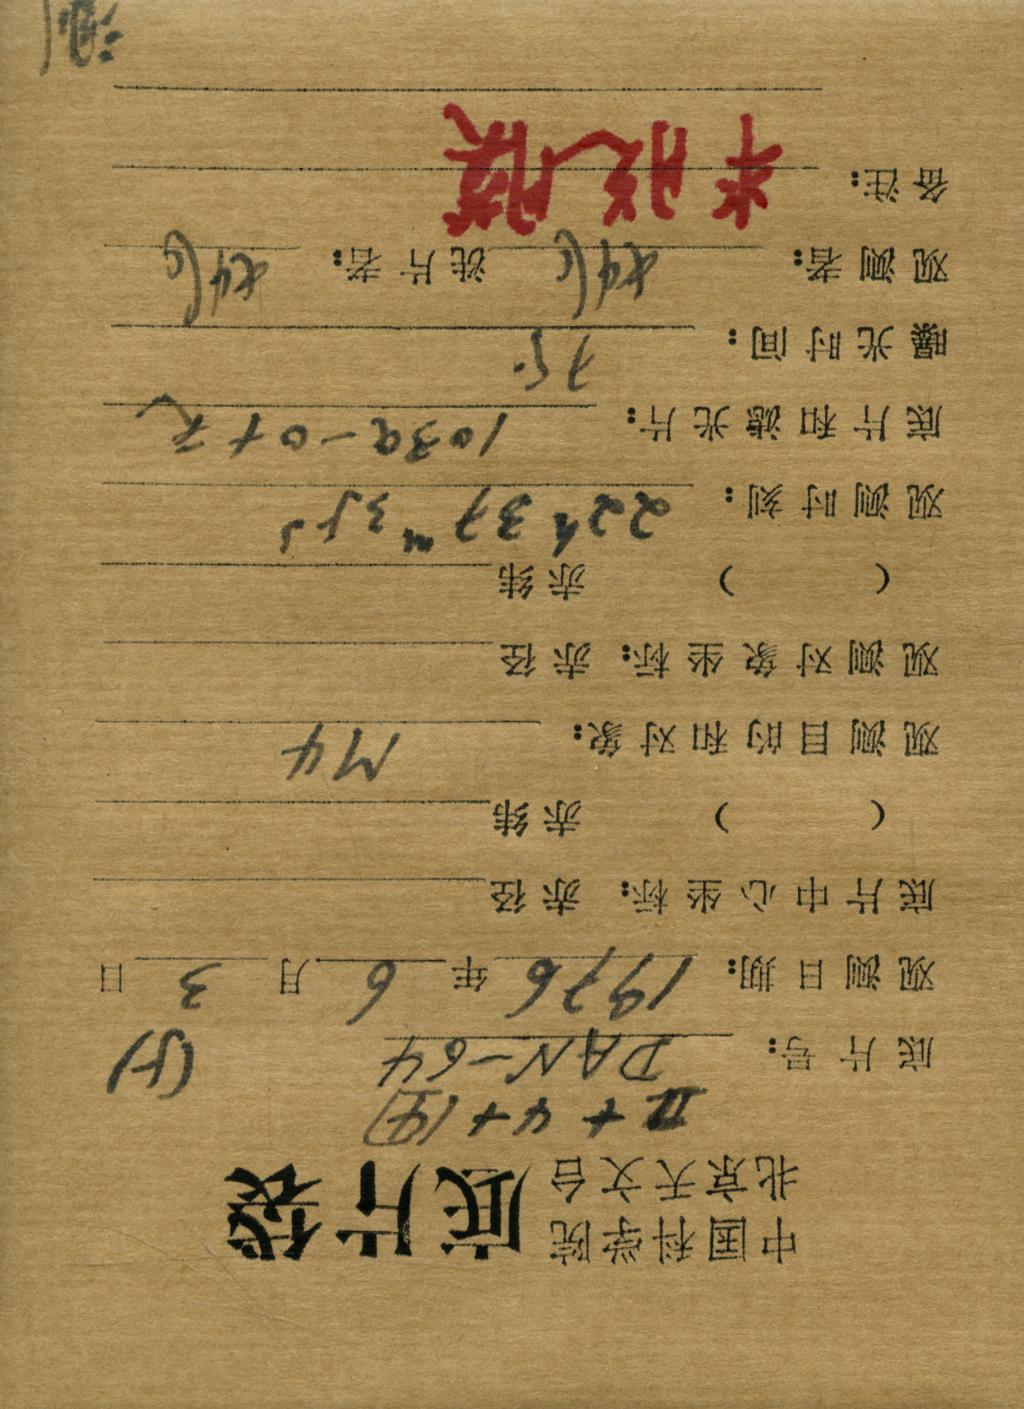 中国科学院
北京天文台 底片袋
II + 4 + (四)
底片号: DAN-64 (5)
观测日期: 1976 年 6 月 3 日
底片中心坐标: 赤径
( ) 赤纬
观测目的和对象: M4
观测对象坐标: 赤径
( ) 赤纬
观测时刻: 22h 37m 35s
底片和滤光片: 103a-O + 无
曝光时间: 75.
观测者: 洗片者:
备注: 未脱膜
测